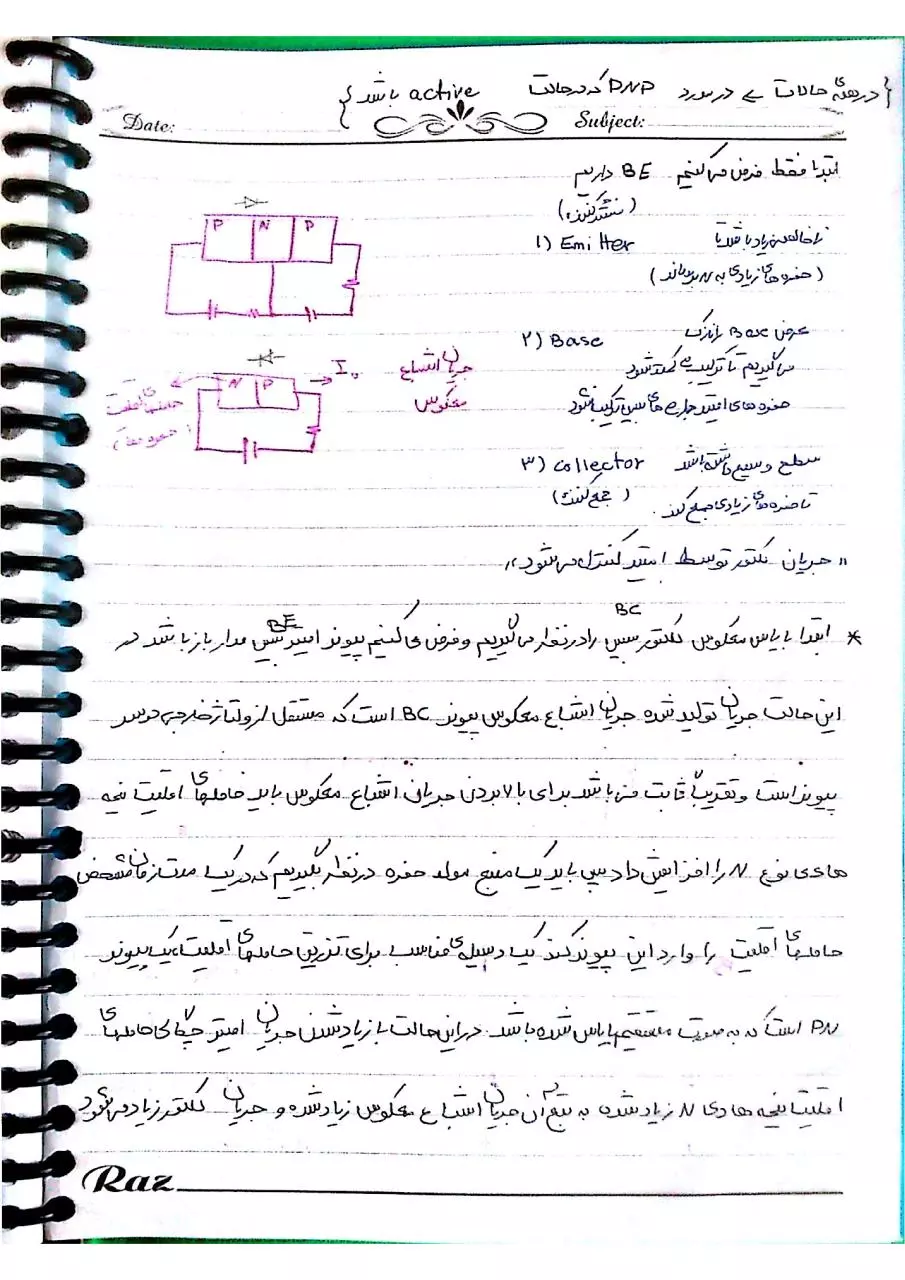 {در همهٔ حالات در مورد PNP که در حالت active باشد}
Date:
Subject:
ابتدا فقط فرض می‌کنیم BE داریم
(منتشر کننده)
۱) Emitter ناخالصی زیاد باشد تا
(حفره های زیادی به N برساند)
P N P
۲) Base عرض Base را نازک
می گیریم تا ترکیب کمتر شود
حفره های امیتر با الکترون های بیس ترکیب شود
I₀
جریان اشباع
معکوس
N P
حاملهای اقلیت
(حفره ها)
۳) collector سطح وسیع داشته باشد
(جمع کننده)
تا حفره های زیادی جمع کند.
"جریان کلکتور توسط امیتر کنترل می شود"
* ابتدا بایاس معکوس کلکتور بیس BC را در نظر می گیریم و فرض می کنیم پیوند امیتر بیس BE مدار باز باشد در
این حالت جریان تولید شده جریان اشباع معکوس پیوند BC است که مستقل از ولتاژ خارجی دو سر
پیوند است و تقریباً ثابت می باشد برای بالا بردن جریان اشباع معکوس باید حاملهای اقلیت نیمه
هادی نوع N را افزایش داد پس باید یک منبع مولد حفره در نظر بگیریم که در یک مدت زمان مشخص
حاملهای اقلیت را وارد این پیوند کند یک وسیلهٔ مناسب برای تزریق حاملهای اقلیت، یک پیوند
PN است که به صورت مستقیم بایاس شده باشد. در این حالت با زیاد شدن جریان امیتر چگالی حاملهای
اقلیت نیمه هادی N زیاد شده به تبع آن جریان اشباع معکوس زیاد شده و جریان کلکتور زیاد می شود
Raz